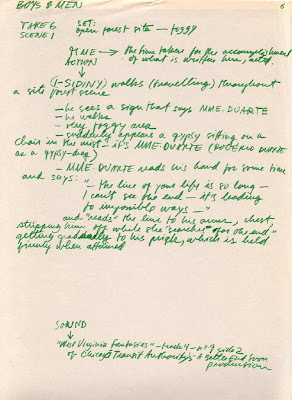 BOYS & MEN
6
TAKE 6
SCENE 1
SET:
open forest site — foggy
TIME → the time taken for the accomplishment
of what is written here, acted.
ACTION
↓
(I-SIDINY) walks (travelling) throughout
a site forest scene
— he sees a sign that says MME. DUARTE
— he walks
— very foggy area
— suddenly appears a gypsy sitting on a
chair in the mist — it's MME. DUARTE (ROGERIO DUARTE
as a gypsy-drag)
— MME. DUARTE reads his hand for some time
and says: "— the line of your life is so long —
I can't see the end — it's leading
to impossible ways —"
and "reads" the line to his arms, chest,
stripping him off while she "searches" "for the end"
getting gradually to his prick, which is held
firmly when attained
SOUND
↓
"West Virginia Fantasies" — track 4 — nº 9 side 2
of Chicago Transit Authority's A Better End Soon
production